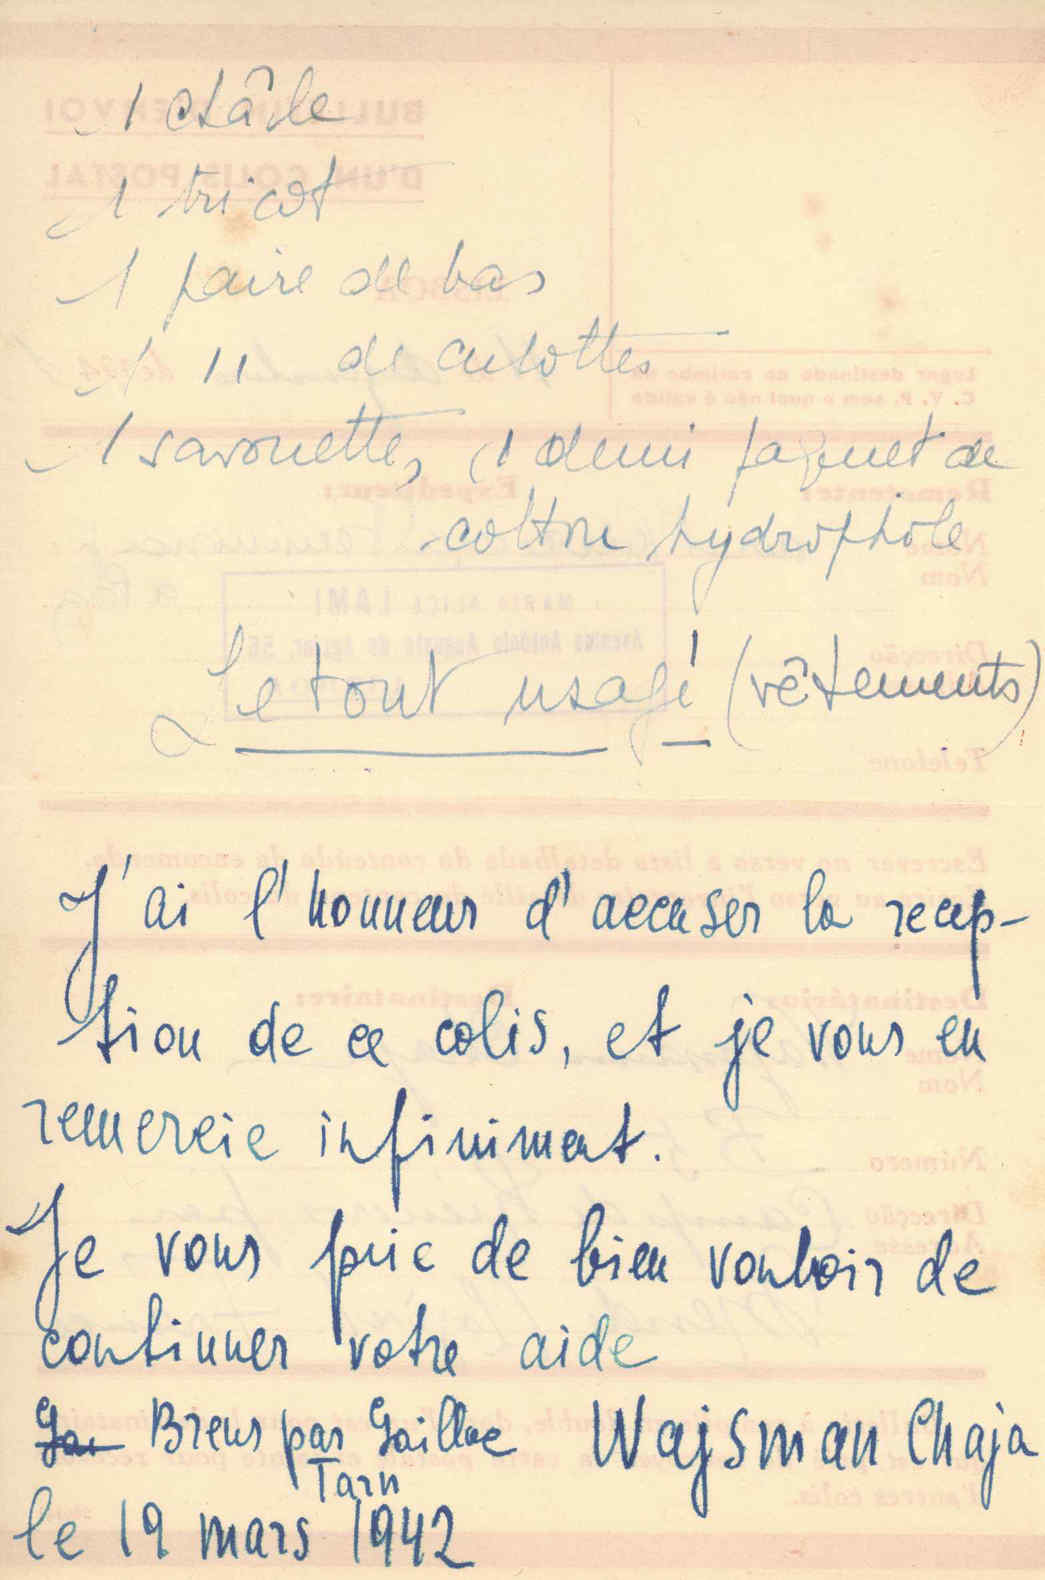 1 châle
1 tricot
1 paire de bas
1 11 de culottes
1 savonette, (1 demi paquet de
cotton hydrophile
Le tout usagé (vêtements)
J'ai l'honneur d'accuser la recep-
tion de ce colis, et je vous en
remercie infiniment.
Je vous prie de bien vouloir de
continuer votre aide
Brens par Gaillac
Tarn
Wajsman Chaja
le 19 mars 1942